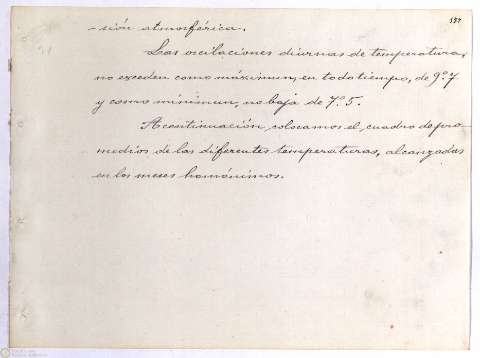 - sión atmosférica.
Las oscilaciones diurnas de temperatura,
no exceden como máximun, en todo tiempo, de 9º7
y como mínimun, no baja de 7º.5.
A continuación, colocamos el, cuadro de pro-
medios de las diferentes temperaturas, alcanzadas
en los meses homónimos.